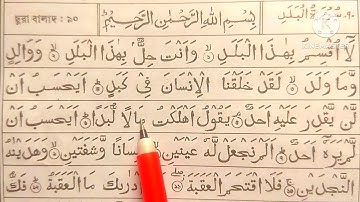 ছুরা বালাদ : ৯০ بِسْمِ اللّٰهِ الرَّحْمٰنِ الرَّحِيْمِ سُوْرَةُ الْبَلَدِ
لَآ اُقْسِمُ بِهٰذَا الْبَلَدِ ۙ وَاَنْتَ حِلٌّۢ بِهٰذَا الْبَلَدِ ۙ وَوَالِدٍ
وَّمَا وَلَدَ ۙ لَقَدْ خَلَقْنَا الْاِنْسَانَ فِيْ كَبَدٍ ؕ اَيَحْسَبُ اَنْ
لَّنْ يَّقْدِرَ عَلَيْهِ اَحَدٌ ۘ يَقُوْلُ اَهْلَكْتُ مَالًا لُّبَدًا ؕ اَيَحْسَبُ اَنْ
لَّمْ يَرَهٗٓ اَحَدٌ ؕ اَلَمْ نَجْعَلْ لَّهٗ عَيْنَيْنِ ۙ وَلِسَانًا وَّشَفَتَيْنِ ۙ وَهَدَيْنٰهُ
النَّجْدَيْنِ ۚ فَلَا اقْتَحَمَ الْعَقَبَةَ ۖ اَدْرٰىكَ مَا الْعَقَبَةُ ؕ فَكُّ